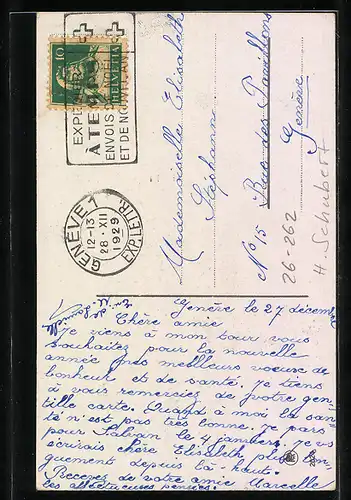 10
HELVETIA
EXPÉDIEZ
À TEMPS
ENVOIS DE NOËL
ET DE NOUVEL AN
GENÈVE 1
12-13
28.XII
1929
EXP. LETTR.
Mademoiselle Elisabeth
Stephann
No 15 Rue des Pavillons
Genève
26-262
H. Schubert
Genève le 27 décembre
Chère amie
Je viens à mon tour vous
souhaiter pour la nouvelle
année mes meilleurs voeux de
bonheur et de santé. Je tiens
à vous remercier de votre gen-
tille carte. Quand à moi la san-
té n'est pas très bonne. Je pars
pour Salvan le 4 janvier. Je vs
écrirais chère Elisabeth plus lon-
guement depuis là-haut.
Recevez de votre amie Marcelle
les affectueuses pensées.